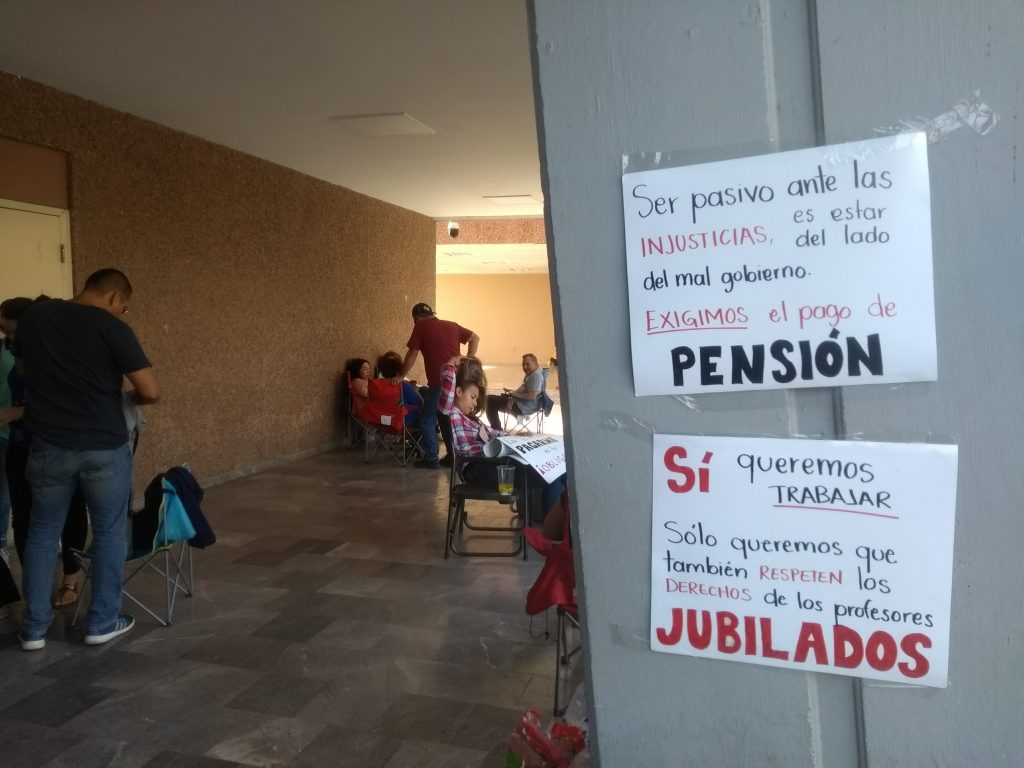 Ser pasivo ante las
INJUSTICIAS, es estar
del lado
del mal gobierno.
EXIGIMOS el pago de
PENSIÓN
SÍ queremos
TRABAJAR
Sólo queremos que
también RESPETEN los
DERECHOS de los profesores
JUBILADOS